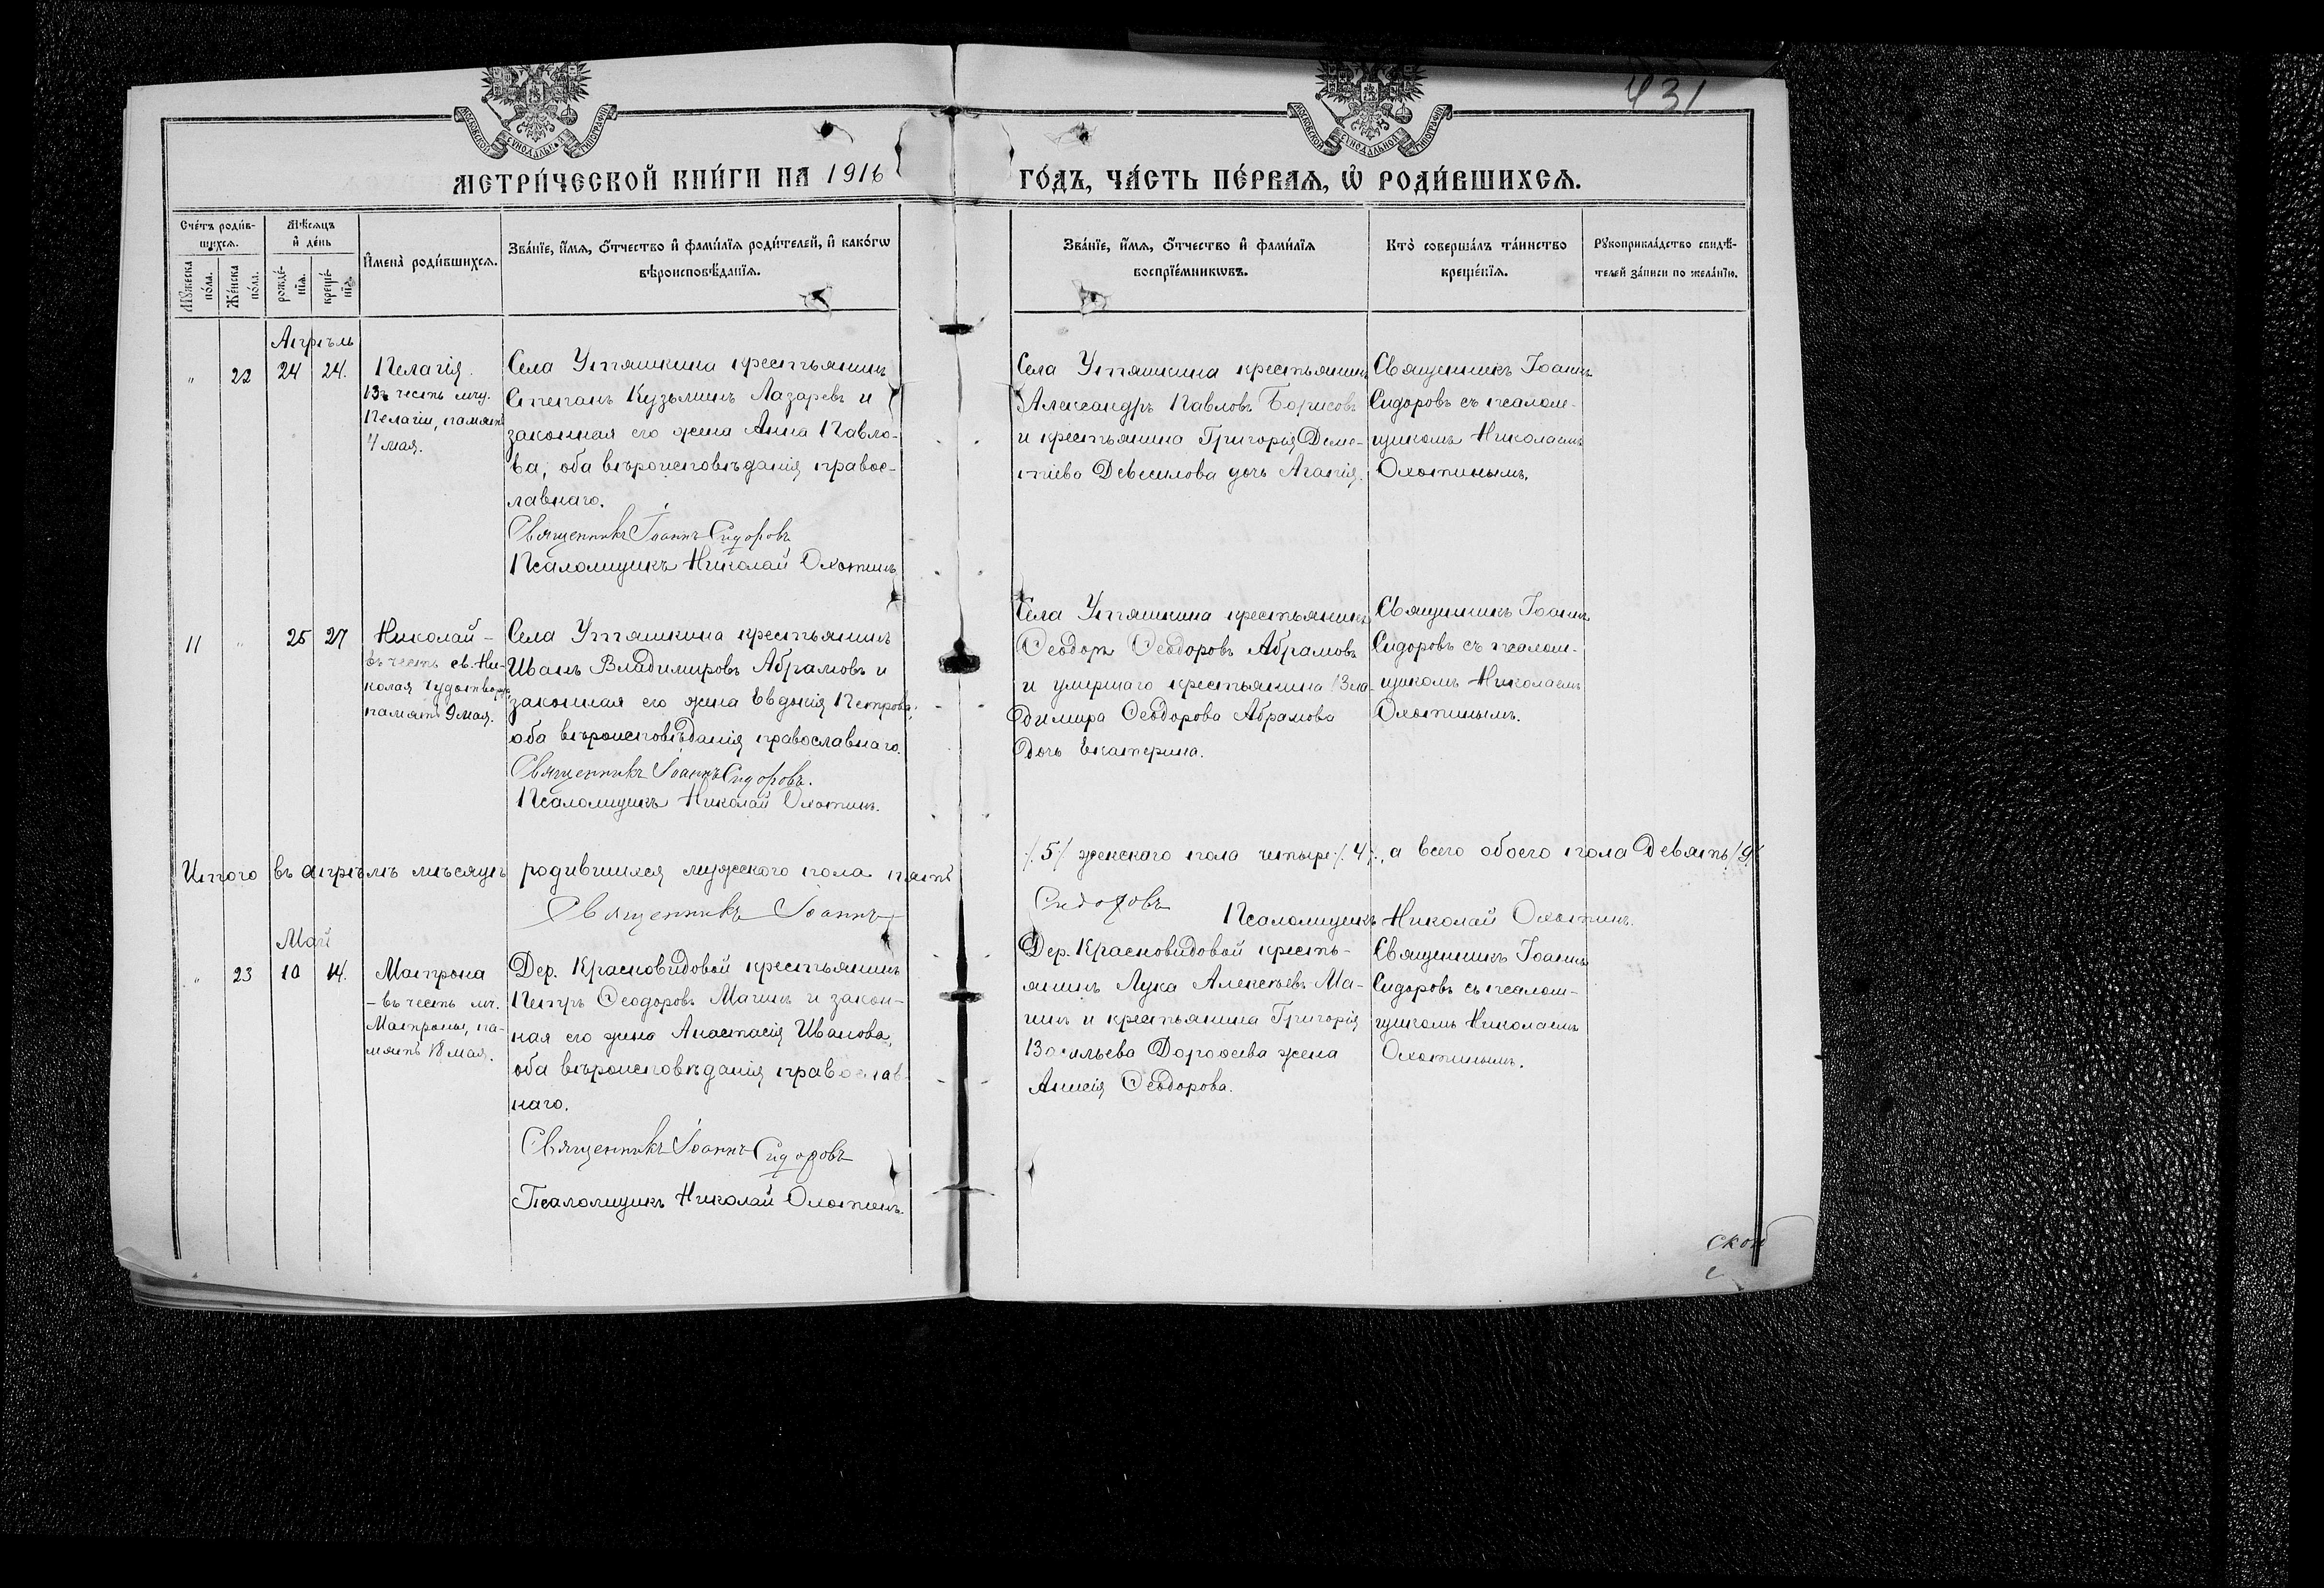 431
МОСКОВСКОЙ СУНОДАЛЬНОЙ ТИПОГРАФІИ
МОСКОВСКОЙ СУНОДАЛЬНОЙ ТИПОГРАФІИ
МЕТРИ́ЧЕСКОЙ КНИ́ГИ НА 1916
ГО́ДЪ, ЧА́СТЬ ПЕ́РВАѦ, Ѡ҆ РОДИ́ВШИХСѦ.
Сче́тъ роди́в-
шихсѧ.
Мꙋ́жеска по́ла.
Же́нска по́ла.
Мѣ́сѧцъ
и҆ де́нь
рожде́-
нїѧ.
креще́-
нїѧ.
И҆мена̀ роди́вшихсѧ.
Зва́нїе, и҆́мѧ, ѻ҆́тчество и҆ фами́лїѧ роди́телей, и҆ како́гѡ
вѣроисповѣ́данїѧ.
Зва́нїе, и҆́мѧ, ѻ҆́тчество и҆ фами́лїѧ
воспрїе́мникѡвъ.
Кто̀ соверша́лъ та́инство
креще́нїѧ.
Рꙋкоприкла́дство свидѣ́-
телей за́писи по жела́нїю.
Апрѣль
" 22 24 24.
Пелагія.
Въ честь мчц.
Пелагіи, память
4 мая.
Села Утяшкина крестьянинъ
Степанъ Кузьминъ Лазаревъ и
законная его жена Анна Павло-
ва, оба вѣроисповѣданія правос-
лавнаго.
Священникъ Іоаннъ Сидоровъ
Псаломщикъ Николай Охотинъ
Села Утяшкина крестьянинъ
Александръ Павловъ Борисовъ
и крестьянина Григорія Деме-
нтіева Девесилова дочь Агапія.
Священникъ Іоаннъ
Сидоровъ съ псалом-
щикомъ Николаемъ
Охотинымъ.
11 " 25 27
Николай -
въ честь св. Ни-
колая Чудотворца,
память 9 мая.
Села Утяшкина крестьянинъ
Иванъ Владимировъ Абрамовъ и
законная его жена Евдокія Петрова;
оба вѣроисповѣданія православнаго.
Священникъ Іоаннъ Сидоровъ.
Псаломщикъ Николай Охотинъ.
Села Утяшкина крестьянинъ
Ѳеодоръ Ѳеодоровъ Абрамовъ
и умершаго крестьянина Вла-
димира Ѳеодорова Абрамова
дочь Екатерина.
Священникъ Іоаннъ
Сидоровъ съ псалом-
щикомъ Николаемъ
Охотинымъ.
Итого въ апрѣлѣ мѣсяцѣ родившихся мужского пола пять
/.5/ женскаго пола четыре /.4/., а всего обоего пола девять /9/
Священникъ Іоаннъ
Сидоровъ
Псаломщикъ Николай Охотинъ.
Май
" 23 10 14.
Матрона
- въ честь мч.
Матроны, па-
мять 18 мая.
Дер. Красновидовой крестьянинъ
Петръ Ѳеодоровъ Магинъ и закон-
ная его жена Анастасія Иванова,
оба вѣроисповѣданія православ-
наго.
Священникъ Іоаннъ Сидоровъ
Псаломщикъ Николай Охотинъ.
Дер. Красновидовой кресть-
янинъ Лука Алексѣевъ Ма-
гинъ и крестьянина Григорія
Васильева Дороѳеева жена
Анисія Ѳеодорова.
Священникъ Іоаннъ
Сидоровъ съ псалом-
щикомъ Николаемъ
Охотинымъ.